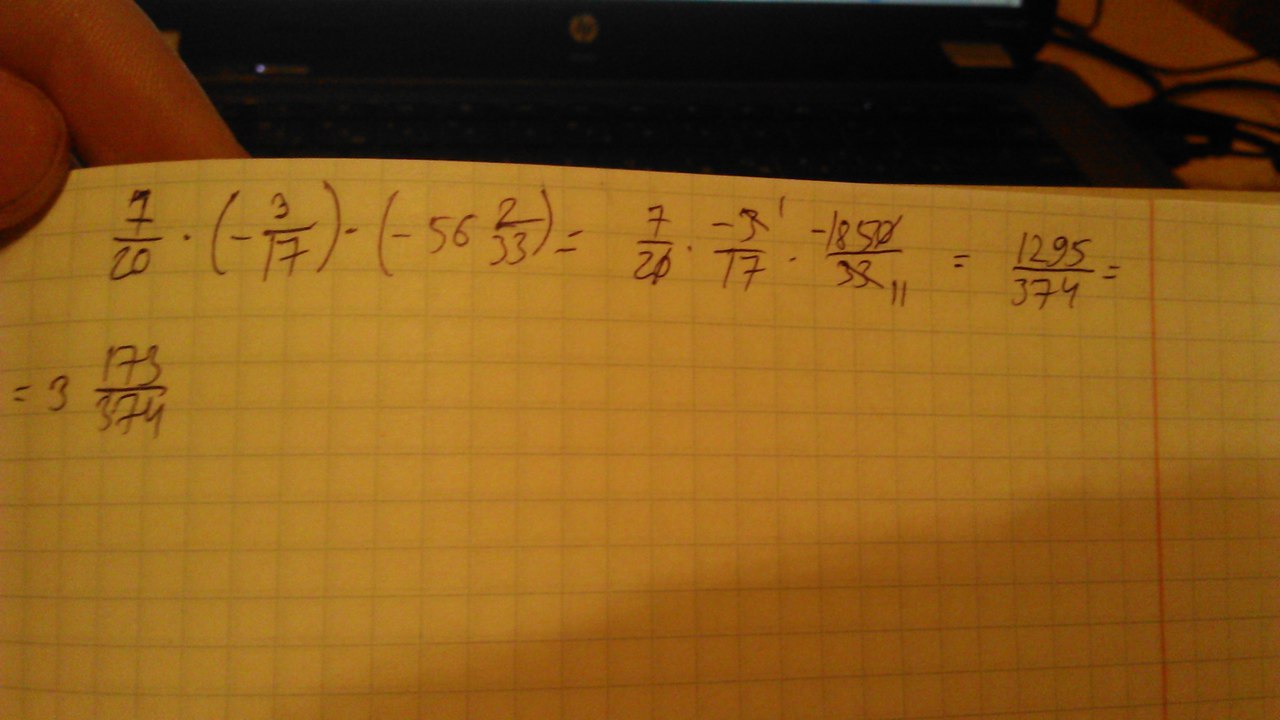 hp
7/20 · (-3/17) · (-56 2/33) = 7/20 · -3/17 · -1850/33 11 = 1295/374 =
= 3 173/374